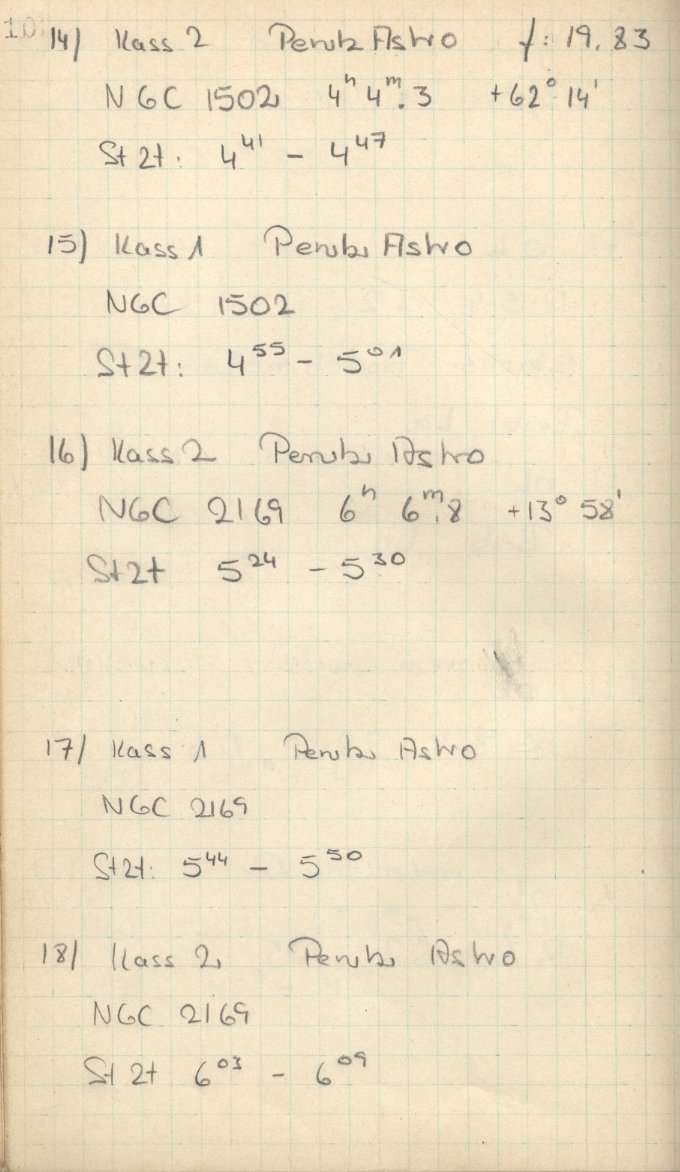 14) Kass 2 Perutz Astro f: 19.83
NGC 1502 4ʰ 4ᵐ.3 +62° 14'
St Zt: 4⁴¹ – 4⁴⁷
15) Kass 1 Perutz Astro
NGC 1502
St Zt: 4⁵⁵ – 5⁰¹
16) Kass 2 Perutz Astro
NGC 2169 6ʰ 6ᵐ.8 +13° 58'
St Zt 5²⁴ – 5³⁰
17) Kass 1 Perutz Astro
NGC 2169
St Zt: 5⁴⁴ – 5⁵⁰
18) Kass 2 Perutz Astro
NGC 2169
St Zt 6⁰³ – 6⁰⁹